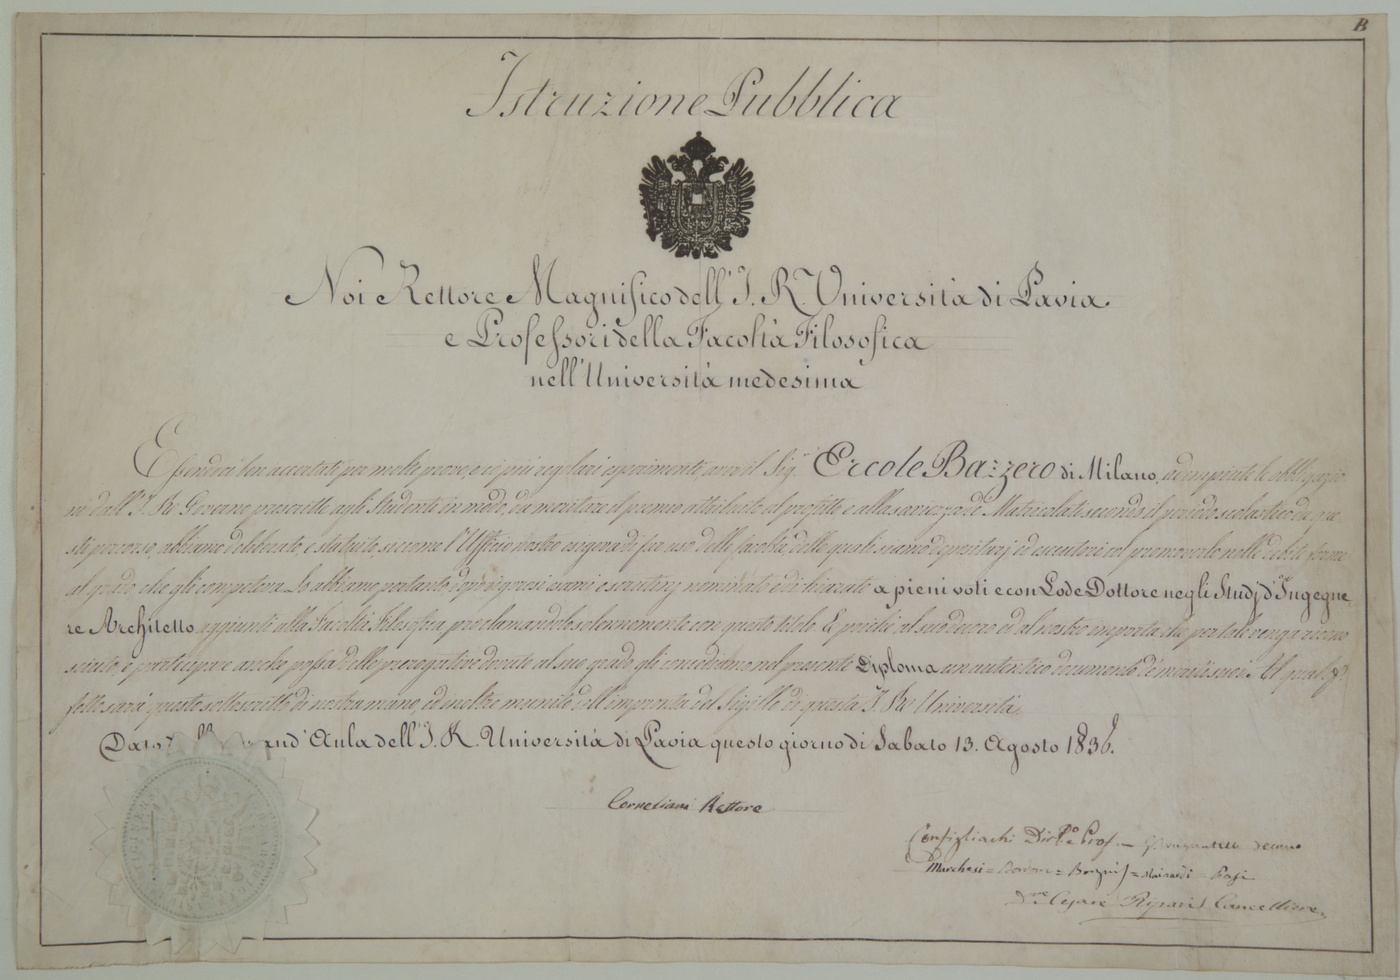 B
Istruzione Pubblica
Noi Rettore Magnifico dell' I. R. Università di Pavia.
e Professori della Facoltà Filosofica
nell' Università medesima
Essendoci ben accertati per molte prove, e co' più regolari esperimenti, aver il Sig.r Ercole Bazzero di Milano, adempiute le obbligazio
ni dall' I. R. Governo prescritte agli Studenti in modo, da meritare il premio attribuito al profitto e alla saviezza de' Matricolati secondo il periodo scolastico da que
sti percorso, abbiamo deliberato, e statuito, siccome l'Uffizio nostro esigeva di far uso delle facoltà, delle quali siamo depositarj ed esecutori col promoverlo nelle debite forme
al grado che gli competeva. Lo abbiamo pertanto dopo rigorosi esami e scrutinj nominato e dichiarato a pieni voti e con Lode Dottore negli Studj d' Ingegne
re Architetto aggiunti alla Facoltà Filosofica proclamandolo solennemente con questo titolo. E poichè al suo decoro ed al nostro importa che per tale venga ricono
sciuto, e participare anche possa delle prerogative dovute al suo grado, gli concediamo nel presente Diploma un autentico documento de' meriti suoi. Al qual ef
fetto sarà questo sottoscritto di nostra mano, ed inoltre munito coll' impronta del Sigillo di questa I. R. Università.
Dato Aula dell' I. R. Università di Pavia questo giorno di Sabato 13. Agosto 1836.
Corneliani Rettore
Configliachi Dir.e e Prof. decano
Marchesi = Bordoni = Borgnis = Mainardi =
Cesare Cancelliere